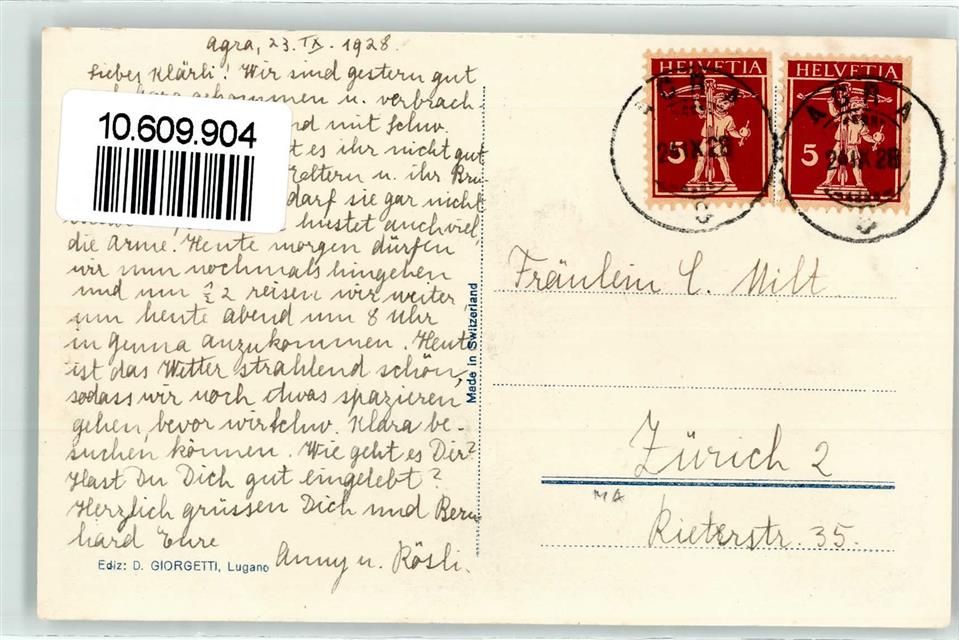 Agra, 23. IX. 1928.
Liebes Klärli! Wir sind gestern gut
gekommen u. verbrach-
nd mit Schw.
t es ihr nicht gut
Eltern u. ihr Bru-
darf sie gar nicht
hustet auch viel,
die Arme. Heute morgen dürfen
wir nun nochmals hingehen
und um ½ 2 reisen wir weiter
um heute abend um 8 Uhr
in Genua anzukommen. Heute
ist das Wetter strahlend schön,
sodass wir noch etwas spazieren
gehen, bevor wir Schw. Klara be-
suchen können. Wie geht es Dir?
Hast Du Dich gut eingelebt?
Herzlich grüssen Dich und Bern-
hard Eure
Anny u. Rösli.
10.609.904
Ediz: D. GIORGETTI, Lugano
Made in Switzerland
HELVETIA
5
HELVETIA
5
AGRA
AGRA
Fräulein C. Milt
Zürich 2
MA
Rieterstr. 35.